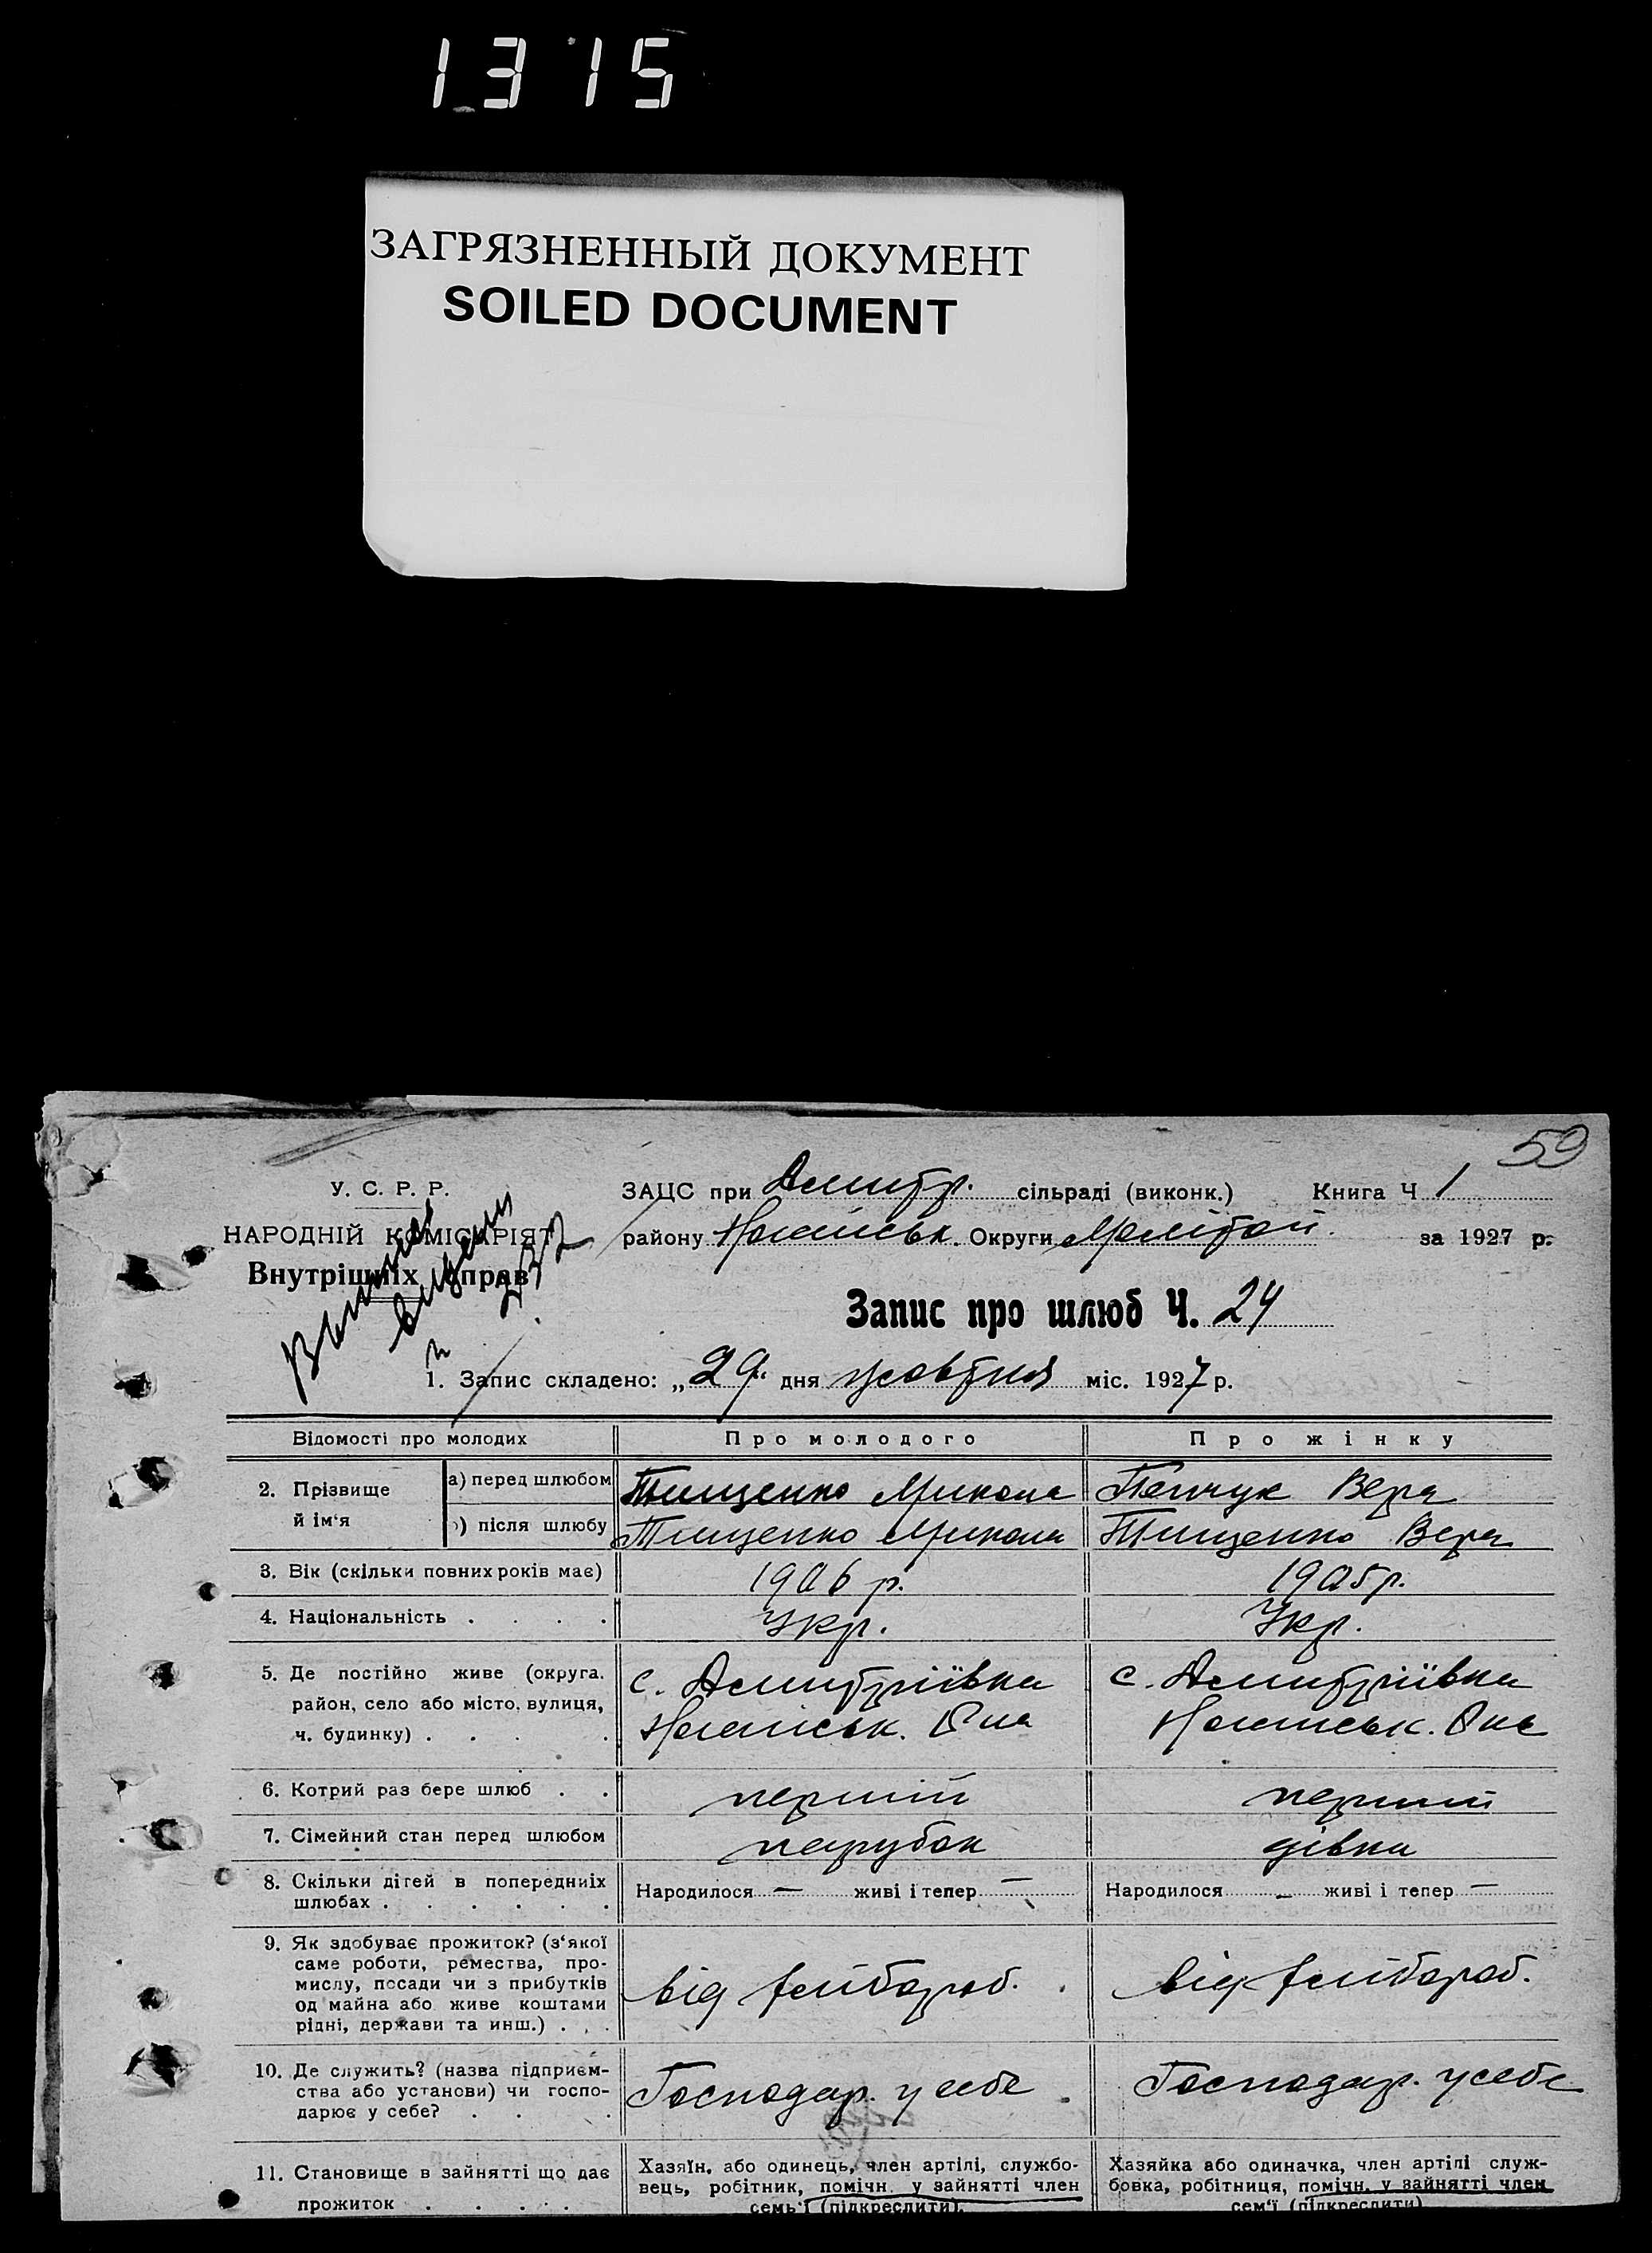 1375
ЗАГРЯЗНЕННЫЙ ДОКУМЕНТ
SOILED DOCUMENT
59
У. С. Р. Р.
НАРОДНІЙ КОМІСАРІЯТ
Внутрішніх справ
ЗАЦС при Дмитр. сільраді (виконк.) Книга Ч 1
району Ногайськ. Округи Мелітоп. за 1927 р.
Запис про шлюб Ч. 24
1. Запис складено: „29“ дня жовтня міс. 1927 р.
Відомості про молодих Про молодого Про жінку
2. Прізвище й ім‘я
а) перед шлюбом Тищенко Микола Вера
) після шлюбу Тищенко Микола Тищенко Вера
3. Вік (скільки повних років має) 1906 р. 1905 р.
4. Національність . . . . Укр. Укр.
5. Де постійно живе (округа,
район, село або місто, вулиця,
ч. будинку) . . . .
с. Дмитріївка
Ногайськ.
с. Дмитріївка
Ногайськ.
6. Котрий раз бере шлюб . . перший перший
7. Сімейний стан перед шлюбом парубок дівка
8. Скільки дітей в попередніх
шлюбах . . . . . .
Народилося — живі і тепер —
Народилося — живі і тепер —
9. Як здобуває прожиток? (з‘якої
саме роботи, ремества, про-
мислу, посади чи з прибутків
од майна або живе коштами
рідні, держави та инш.) . . .
від хлібороб.
від хлібороб.
10. Де служить? (назва підприєм-
ства або установи) чи госпо-
дарює у себе? . . .
Господар. у себе
Господар. у себе
11. Становище в зайнятті що дає
прожиток . . . . .
Хазяїн, або одинець, член артілі, службо-
вець, робітник, помічн. у зайнятті член
семь‘ї (підкреслити).
Хазяйка або одиначка, член артілі служ-
бовка, робітниця, помічн. у зайнятті член
сем‘ї (підкреслити)